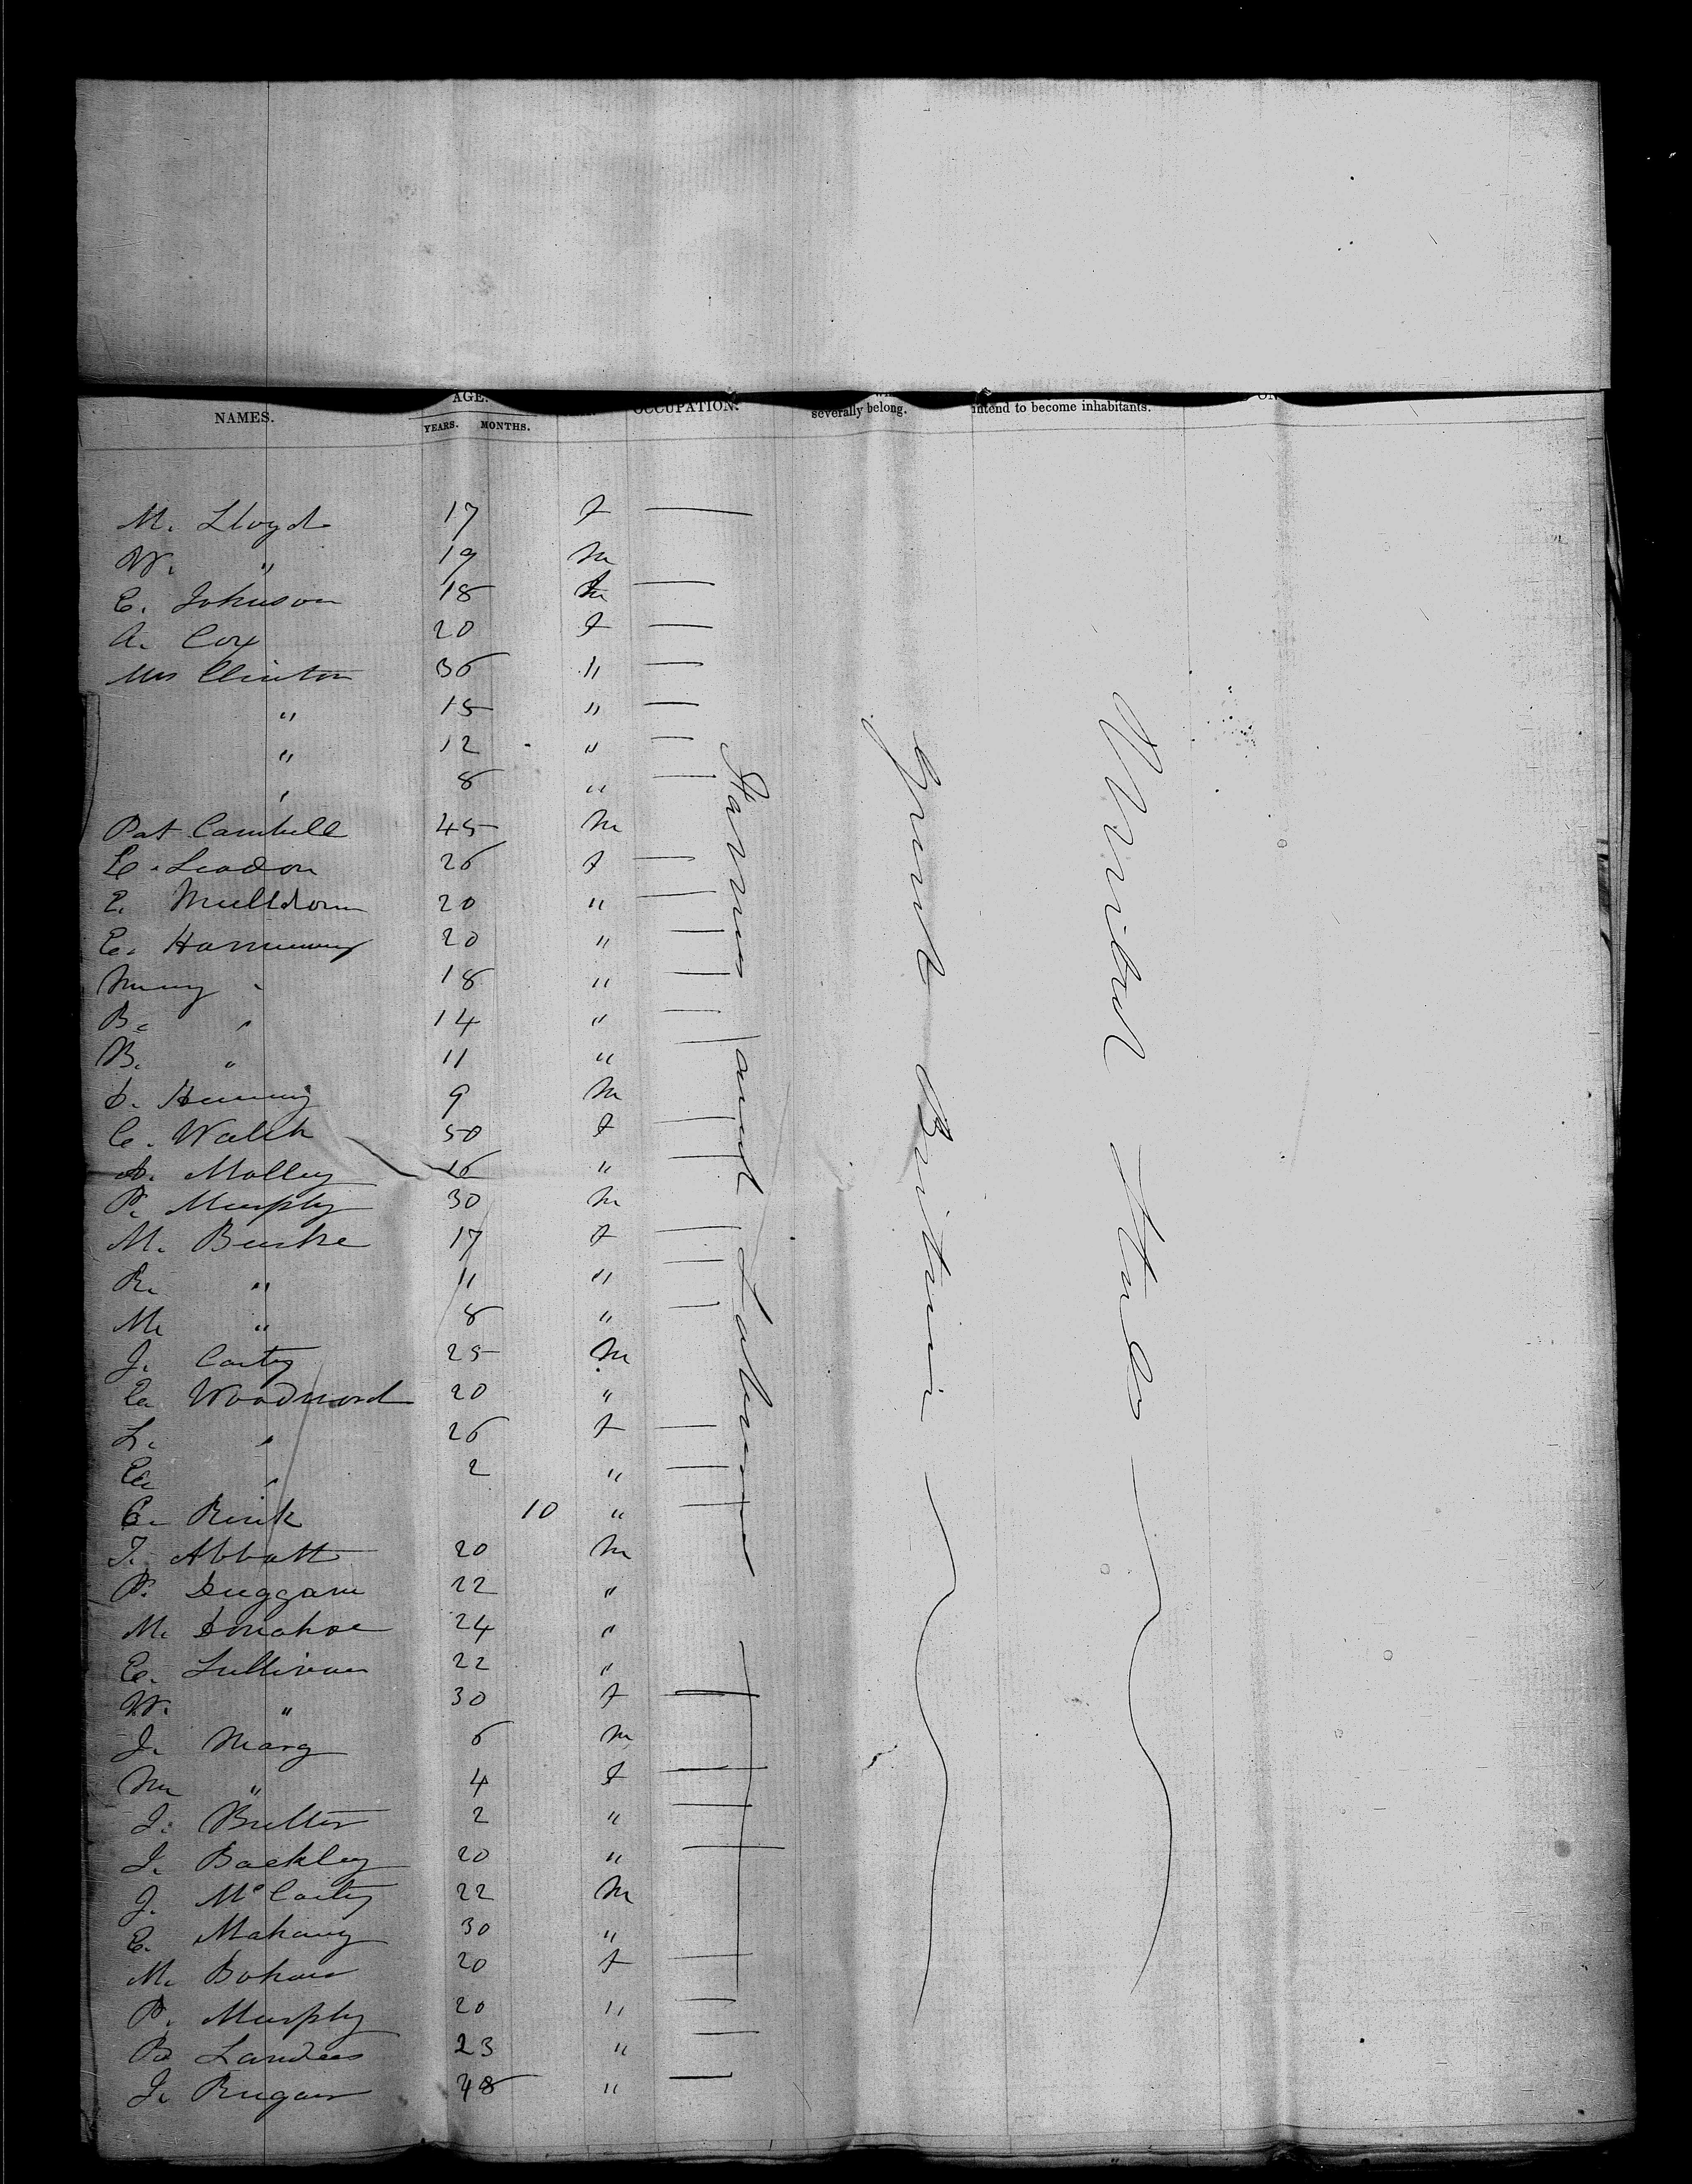 NAMES. AGE. OCCUPATION. severally belong. intend to become inhabitants. ON
YEARS. MONTHS.
M. Lloyd 17 f —
W. " 19 m
E. Johnson 18 —
A. Cox 20 f —
Mrs Clinton 36 " —
" 15 " —
" 12 " —
" 8 " —
Pat Cambell 45 m
26 f —
E. Mulldown 20 " —
E. 20 " —
" 18 " —
B. " 14 " —
B. " 11 " —
9 m
C. Walsh 50 f —
A. Molley 16 " —
P. Murphy 30 m
M. Burke 17 f —
R. " 11 " —
M. " 8 " —
J. Carty 25 m
Woodword 20 "
L. " 26 f —
" 2 " —
10 " —
T. Abbott 20 m
P. Duggan 22 "
M. Donahoe 24 "
C. Sullivan 22 "
W. " 30 f —
J. Mary 6 m
M " 4 f —
J. Butler 2 " —
J. Backley 20 " —
J. McCarty 22 m
E. Mahany 30 "
M. Bohan 20 f —
P. Murphy 20 " —
B Landers 23 " —
J. 48 " —
Farmers and Labourers
Great Britain
United States